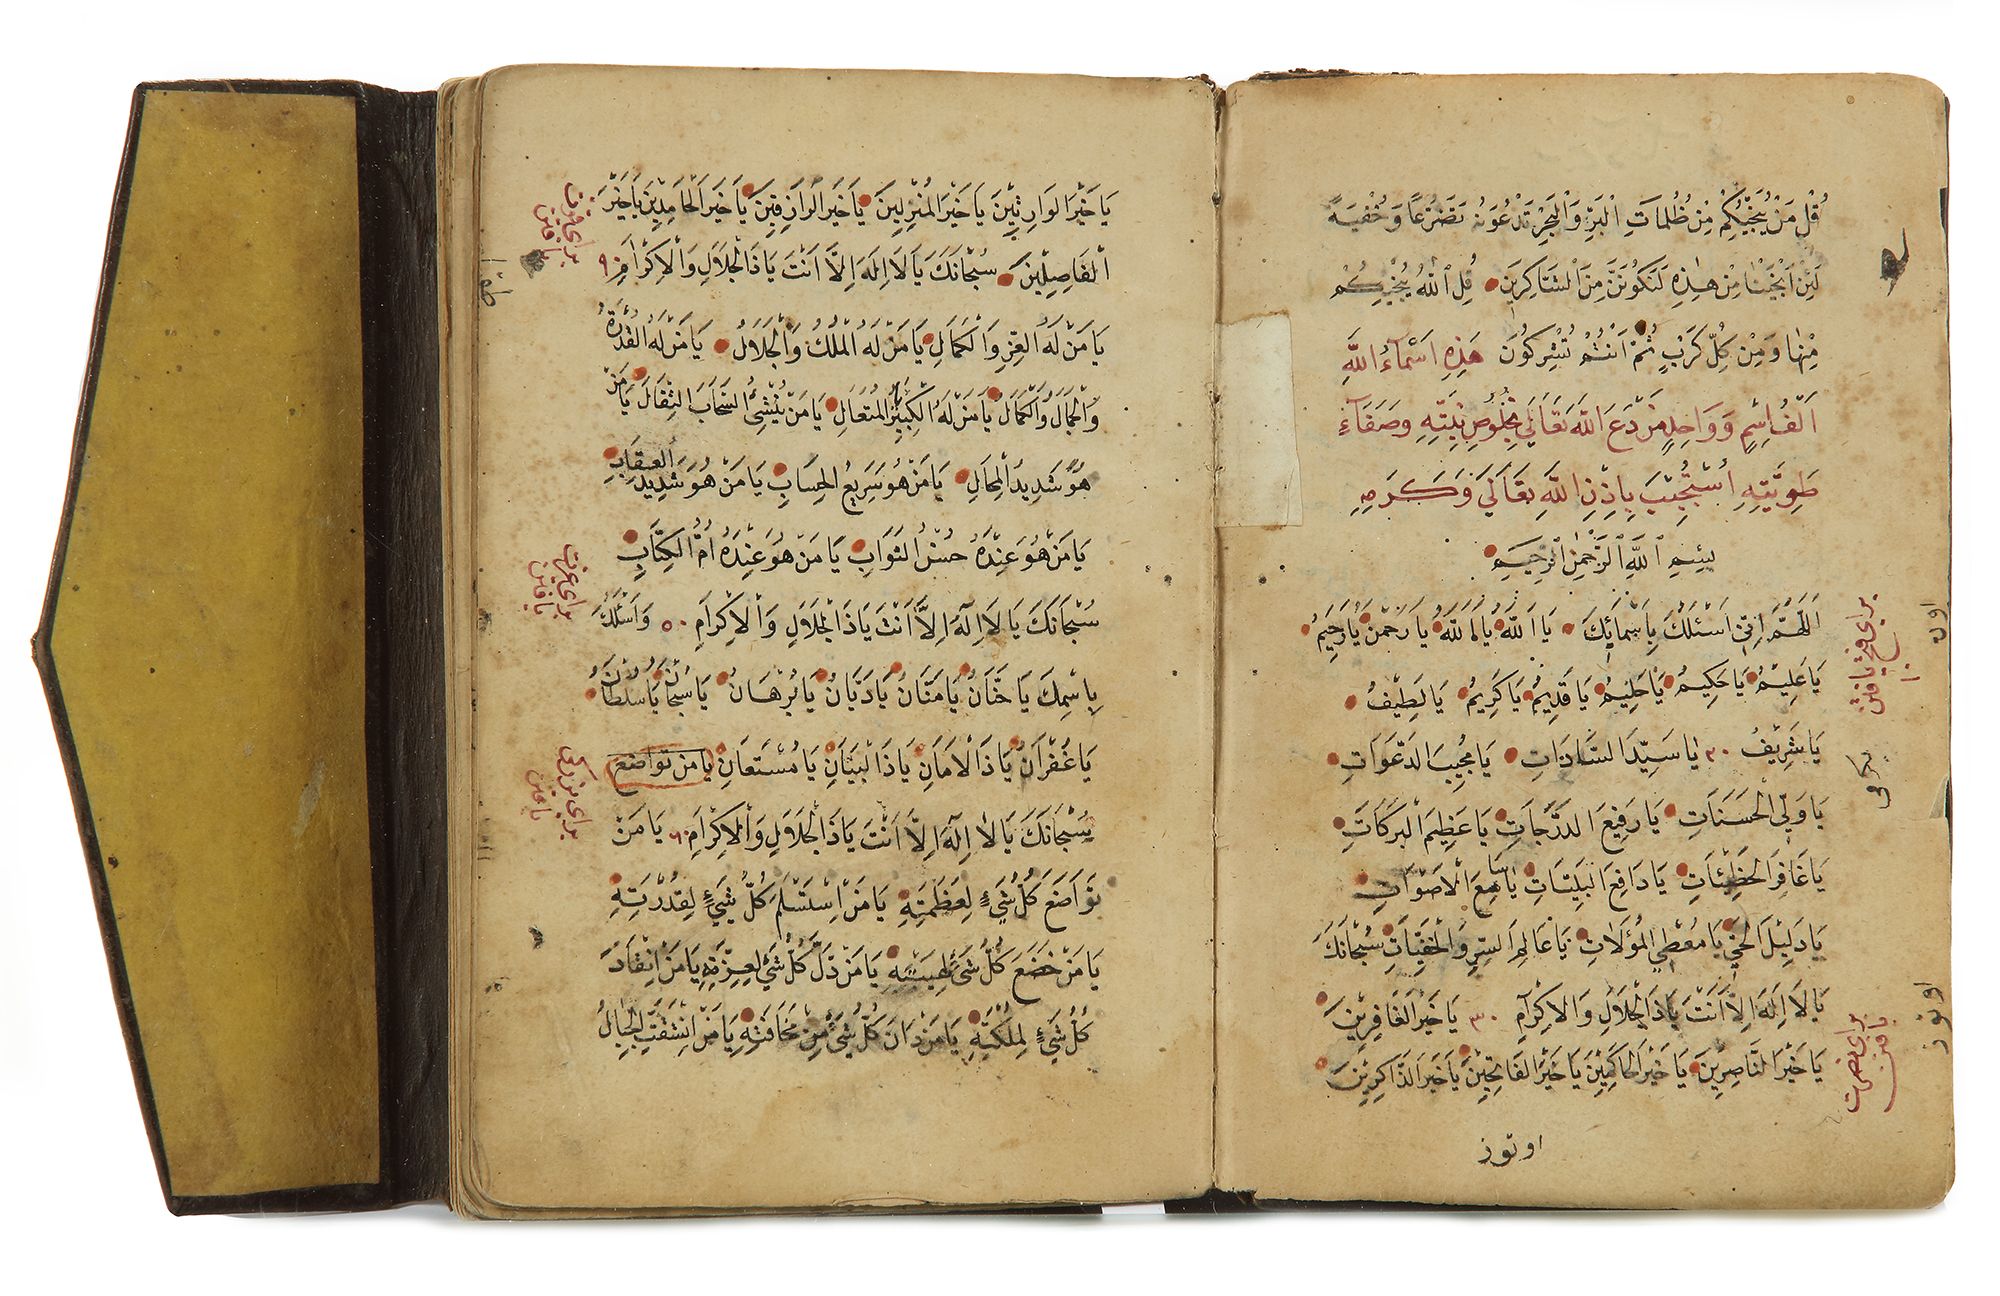 قُلْ مَنْ يُنَجِّيكُمْ مِنْ ظُلُمَاتِ الْبَرِّ وَالْبَحْرِ تَدْعُونَهُ تَضَرُّعًا وَخُفْيَةً
لَئِنْ اَنْجَيْتَنَا مِنْ هٰذِهِ لَنَكُونَنَّ مِنَ الشَّاكِرِينَ قُلِ اللّٰهُ يُنَجِّيكُمْ
مِنْهَا وَمِنْ كُلِّ كَرْبٍ ثُمَّ اَنْتُمْ تُشْرِكُونَ هَذِهِ اَسْمَاءُ اللّٰهِ
اَلْفُ اِسْمٍ وَوَاحِدٍ مَنْ دَعَ اللّٰهَ تَعَالَى بِخُلُوصِ نِيَّتِهِ وَصَفَآءِ
طَوِيَّتِهِ اُسْتُجِيبَ بِاِذْنِ اللّٰهِ تَعَالَى وَكَرَمِهِ
بِسْمِ اللّٰهِ الرَّحْمٰنِ الرَّحِيمِ
اَللّٰهُمَّ اِنِّي اَسْئَلُكَ بِاَسْمَائِكَ يَا اَللّٰهُ يَا اَللّٰهُ يَا رَحْمٰنُ يَا رَحِيمُ
يَا عَلِيمُ يَا حَكِيمُ يَا حَلِيمُ يَا قَدِيمُ يَا كَرِيمُ يَا لَطِيفُ
يَا شَرِيفُ ٢٠ يَا سَيِّدَ السَّادَاتِ يَا مُجِيبَ الدَّعَوَاتِ
يَا وَلِيَّ الْحَسَنَاتِ يَا رَفِيعَ الدَّرَجَاتِ يَا عَظِيمَ الْبَرَكَاتِ
يَا غَافِرَ الْخَطِيئَاتِ يَا دَافِعَ الْبَلِيَّاتِ يَا سَامِعَ الْاَصْوَاتِ
يَا دَلِيلَ الْخَيْرِ يَا مُعْطِيَ الْمُؤلَاتِ يَا عَالِمَ السِّرِّ وَالْخَفِيَّاتِ سُبْحَانَكَ
يَا لَا اِلٰهَ اِلَّا اَنْتَ يَا ذَا الْجَلَالِ وَالْاِكْرَامِ ٣٠ يَا خَيْرَ الْغَافِرِينَ
يَا خَيْرَ النَّاصِرِينَ يَا خَيْرَ الْحَاكِمِينَ يَا خَيْرَ الْفَاتِحِينَ يَا خَيْرَ الذَّاكِرِينَ
اوتوز
براى فتح
اون
براى نصرت
اوتوز
يَا خَيْرَ الْوَارِثِينَ يَا خَيْرَ الْمُنْزِلِينَ يَا خَيْرَ الرَّازِقِينَ يَا خَيْرَ الْحَامِدِينَ يَا خَيْرَ
الْفَاصِلِينَ سُبْحَانَكَ يَا لَا اِلٰهَ اِلَّا اَنْتَ يَا ذَا الْجَلَالِ وَالْاِكْرَامِ
يَا مَنْ لَهُ الْعِزُّ وَالْكَمَالِ يَا مَنْ لَهُ الْمُلْكُ وَالْجَلَالُ يَا مَنْ لَهُ الْقُدْرَةُ
وَالْجَمَالُ وَالْكَمَالُ يَا مَنْ لَهُ الْكَبِيرُ الْمُتَعَالِ يَا مَنْ يُنْشِئُ السَّحَابَ الثِّقَالَ يَا مَنْ
هُوَ شَدِيدُ الْمِحَالِ يَا مَنْ هُوَ سَرِيعُ الْحِسَابِ يَا مَنْ هُوَ شَدِيدُ الْعِقَابِ
يَا مَنْ هُوَ عِنْدَهُ حُسْنُ الثَّوَابِ يَا مَنْ هُوَ عِنْدَهُ اُمُّ الْكِتَابِ
سُبْحَانَكَ يَا لَا اِلٰهَ اِلَّا اَنْتَ يَا ذَا الْجَلَالِ وَالْاِكْرَامِ ٥٠ وَاَسْئَلُكَ
بِاِسْمِكَ يَا حَنَّانُ يَا مَنَّانُ يَا دَيَّانُ يَا بُرْهَانُ يَا سُبْحَانُ يَا سُلْطَانُ
يَا غُفْرَانُ يَا ذَا الْاَمَانِ يَا ذَا الْبَيَانِ يَا مُسْتَعَانِ يا من تواضع
سُبْحَانَكَ يَا لَا اِلٰهَ اِلَّا اَنْتَ يَا ذَا الْجَلَالِ وَالْاِكْرَامِ ٦٠ يَا مَنْ
تَوَاضَعَ كُلُّ شَيْءٍ لِعَظَمَتِهِ يَا مَنْ اِسْتَسْلَمَ كُلُّ شَيْءٍ لِقُدْرَتِهِ
يَا مَنْ خَضَعَ كُلُّ شَيْءٍ لِهَيْبَتِهِ يَا مَنْ ذَلَّ كُلُّ شَيْءٍ لِعِزَّتِهِ يَا مَنْ اِنْقَادَ
كُلُّ شَيْءٍ لِمُلْكَتِهِ يَا مَنْ دَانَ كُلُّ شَيْءٍ مِنْ مَخَافَتِهِ يَا مَنْ انْشَقَّتِ الْجِبَالُ
براى
براى عزت
براى بزركى